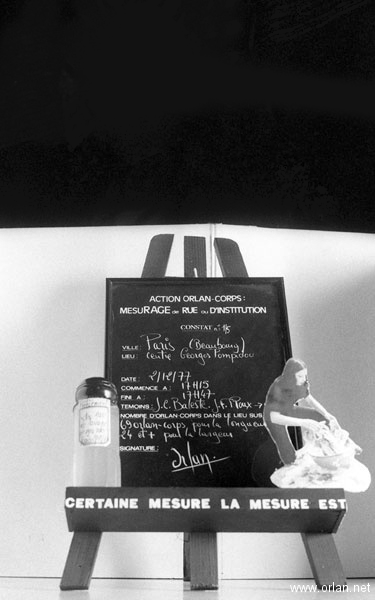 ACTION ORLAN-CORPS:
MESURAGE DE RUE OU D'INSTITUTION
CONSTAT n°
VILLE: Paris (Beaubourg)
LIEU: Centre Georges Pompidou
DATE: 2/12/77
COMMENCE A: 17H15
FINI A: 17H47
TEMOINS: J.C. Baleste, J.F. Roux
NOMBRE D'ORLAN-CORPS DANS LE LIEU SUS.
69 orlan-corps pour la longueur
24 et + pour la largeur
SIGNATURE: Orlan.
CERTAINE MESURE LA MESURE EST
www.orlan.net